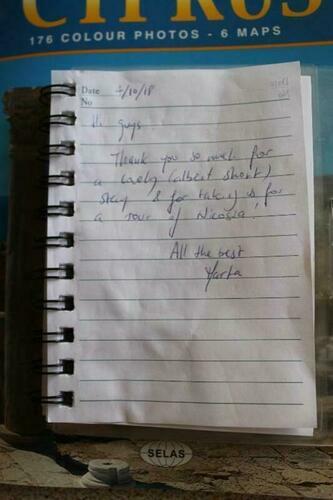 CYPRUS
176 COLOUR PHOTOS - 6 MAPS
Date 7/10/18
No
Hi guys
Thank you so much for
a lovely (albeit short)
stay & for taking us for
a tour of Nicosia!
All the best
Marta
SELAS